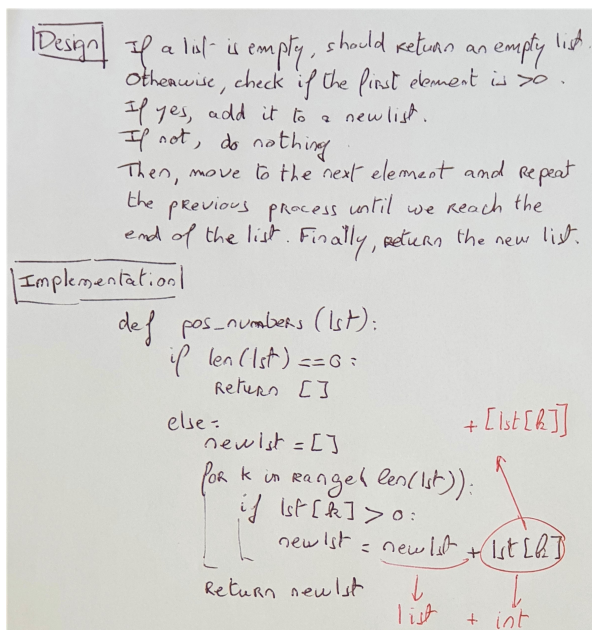 Design If a list is empty, should return an empty list.
Otherwise, check if the first element is >0.
If yes, add it to a newlist.
If not, do nothing.
Then, move to the next element and repeat
the previous process until we reach the
end of the list. Finally, return the new list.
Implementation
def pos_numbers (lst):
if len(lst) == 0:
Return []
else:
newlst = []
+ [lst[k]]
for k in range( len(lst)):
if lst[k] > 0:
newlst = newlst + lst[k]
Return newlst
list + int